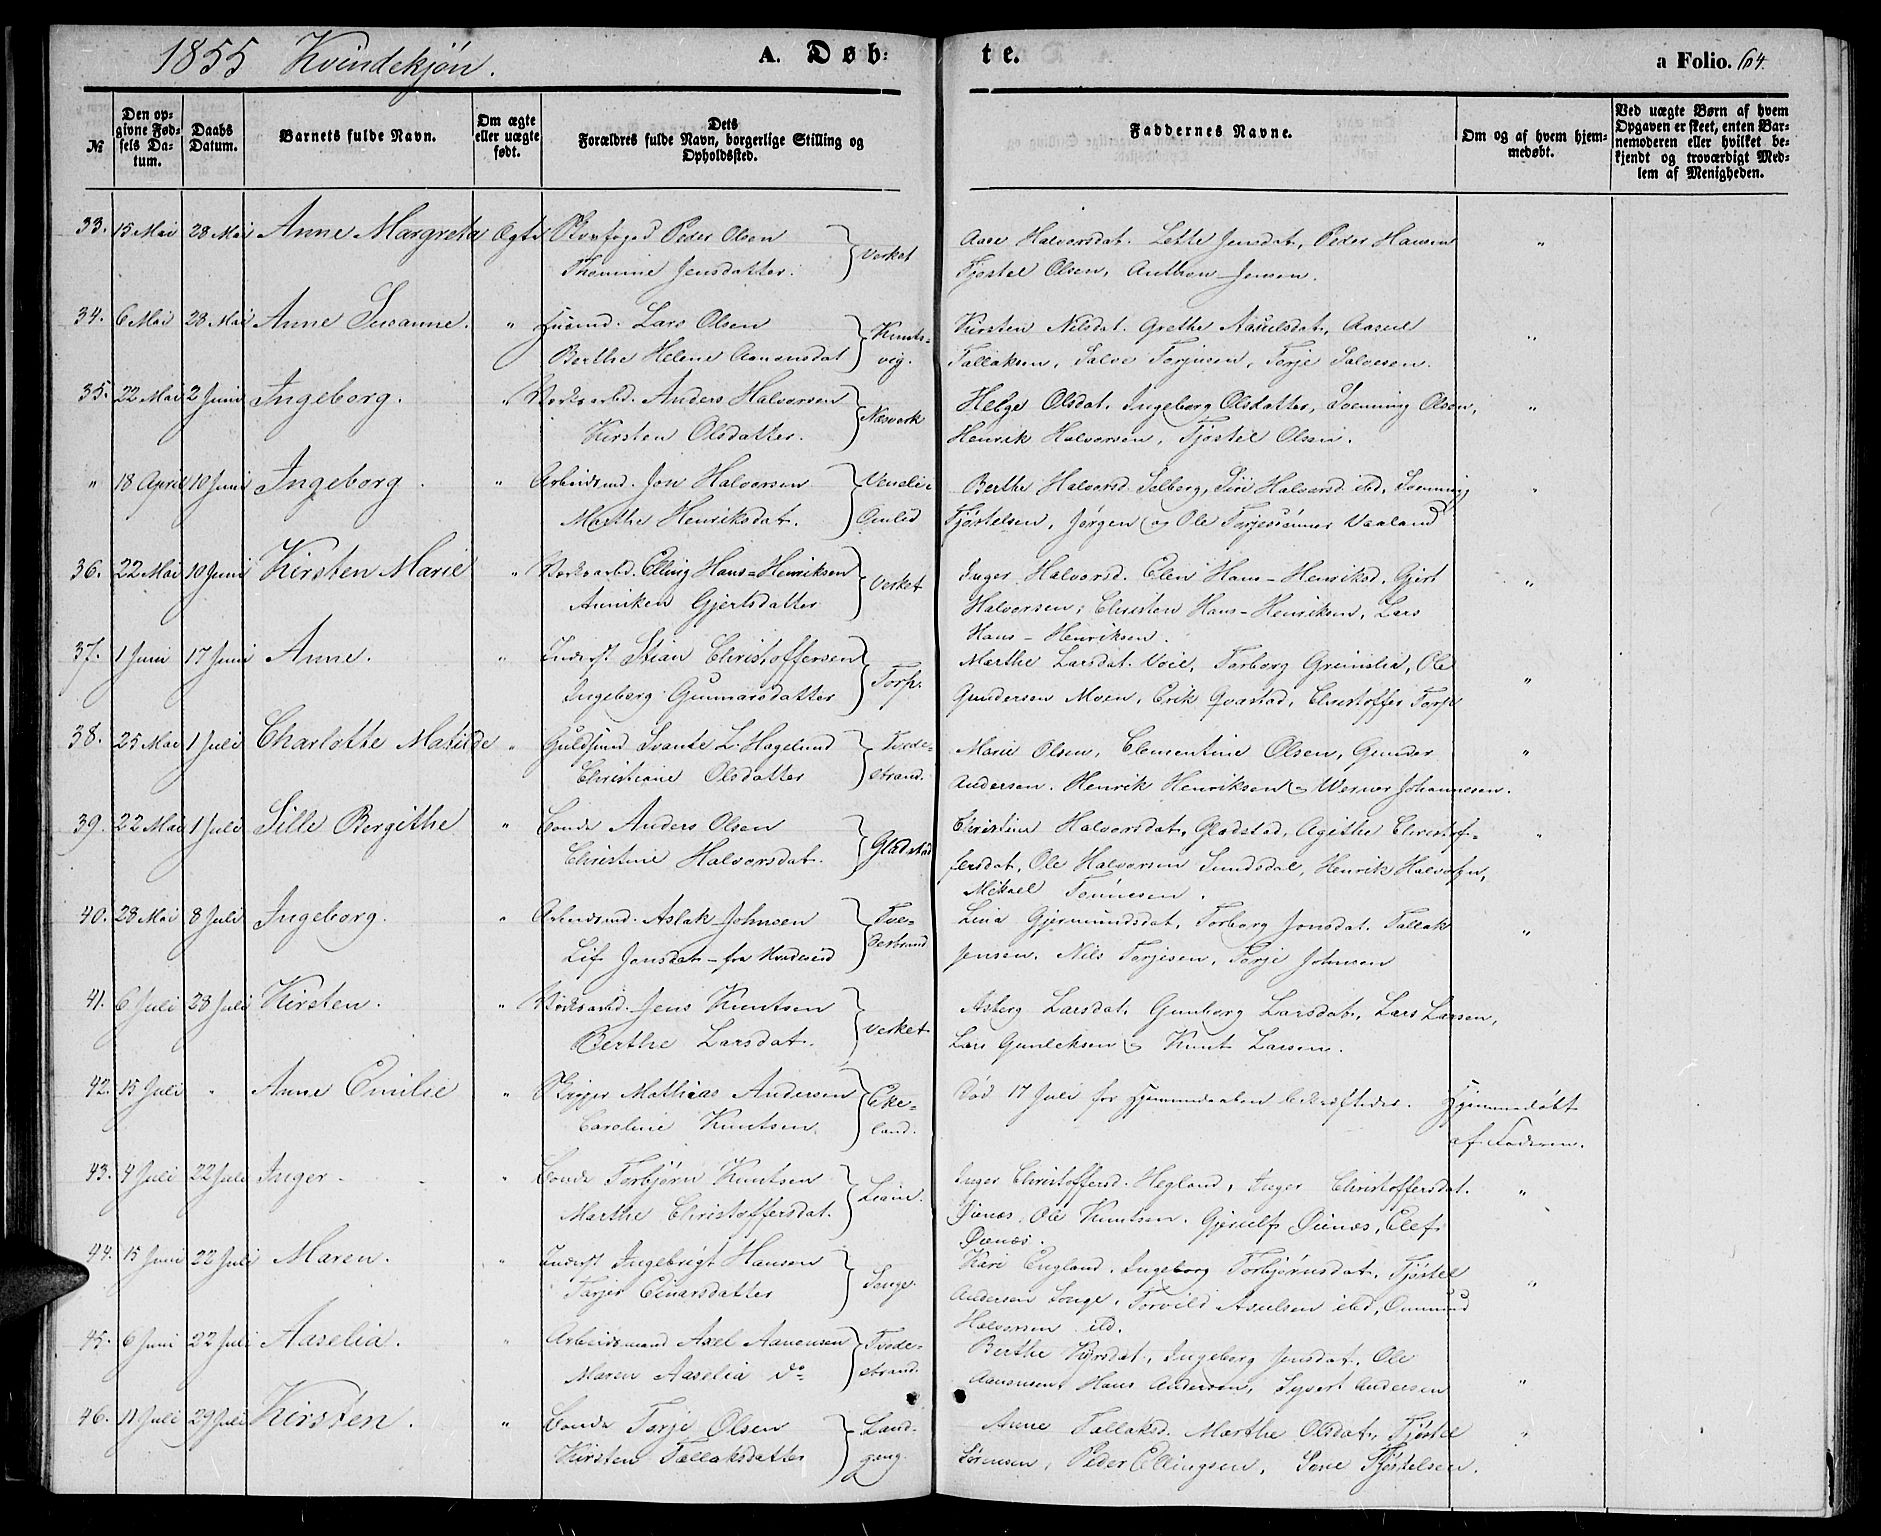 1855 Kvindekjön. A. Døb: te. a Folio. 64.
№
Den opgivne Fødsels Datum.
Daabs Datum.
Barnets fulde Navn.
Om ægte eller uægte født.
Dets Forældres fulde Navn, borgerlige Stilling og Opholdssted.
Faddernes Navne.
Om og af hvem hjemmedøbt.
Ved uægte Børn af hvem Opgaven er skeet, enten Barnemoderen eller hvilket bekjendt og troværdigt Medlem af Menigheden.
33. 15 Mai 28 Mai Anne Margrethe Ægte Skovfoged Peder Olsen } Verket Aase Halvorsdat. Lette Jensdat, Peder Hansen "
Thomine Jensdatter. Tjøstel Olsen, Anthon Jensen.
34. 6 Mai 28 Mai Anne Susanne. " Huusmd. Lars Olsen } Knuts- Kirsten Nilsdat. Grethe Aasulsdat, Aasul "
Berthe Helene Aanonsdat vig. Tallaksen, Salve Torjusen, Torje Salvesen.
35. 22 Mai 2 Juni Ingeborg. " Værksarbd. Anders Halvorsen } Næsverk Helge Olsdat, Ingeborg Olsdatter, Svenning Olsen, "
Kirsten Olsdatter. Henrik Halvorsen, Tjøstel Olsen.
" 18 April 10 Juni Ingeborg. " Arbeidsmd. Jon Halvorsen } Berthe Halvorsd. Selberg, Siri Halvorsd. ibd, Svenning "
Marthe Henriksdat. Omlid Tjøstelsen, Jørgen og Ole Torjesønner Vaaland
36. 22 Mai 10 Juni Kirsten Marie " Værksarbd. Elling Hans-Henriksen } Verket Inger Halvorsd. Elen Hans-Henriksd, Gjert "
Anniken Gjertsdatter Halvorsen, Christen Hans-Henriksen, Lars
Hans-Henriksen.
37. 1 Juni 17 Juni Anne. " Inderst Stian Christoffersen } Torp. Marthe Larsdat. Voie, Torborg Greinslia, Ole "
Ingeborg Gunmarsdatter Gundersen Moen, Erik Qvastad, Christoffer Torp
38. 25 Mai 1 Juli Charlotte Matilde " Guldsmd Svante L. Hagelund } Tvede- Marie Olsen, Clementine Olsen, Gunder "
Christiane Olsdatter strand. Andersen. Henrik Henriksen & Werner Johannesen.
39. 22 Mai 1 Juli Sille Bergithe " Bonde Anders Olsen } Gladstad Christine Halvorsdat, Gladstad, Agithe Christof- "
Christine Halvorsdat. fersdat, Ole Halvorsen Sundsdal, Henrik Halvorsen,
Mikael Tønnesen.
40. 28 Mai 8 Juli Ingeborg. " Arbeidsmd. Aslak Johnsen } Tve- Lina Gjermundsdat, Torborg Jonsdat. Tallak "
Lif Jonsdat - fra Hvideseid destrand Jensen. Nils Torjesen, Torje Johnsen
41. 6 Juli 28 Juli Kirsten. " Værksarbd. Jens Knutsen } Verket Asberg Larsdat. Gunborg Larsdat, Lars Larsen,
Berthe Larsdat. Lars Gunleksen & Knut Larsen.
42. 15 Juli " Anne Emilie " Skipper Mathias Andersen } Eke- Død 17 Juli før Hjemmedaaben bekræftedes. Hjemmedøbt
Caroline Knutsen. land. af Faderen.
43. 4 Juli 22 Juli Inger. " Bonde Torbjørn Knutsen } Liane. Inger Christoffersd. Hegland, Inger Christoffersdat. "
Marthe Christoffersdat. Øienæs, Ole Knutsen, Gjerulf Øienæs, Elef
Øienæs.
44. 15 Juni 22 Juli Maren. " Inderst Ingebrigt Hansen } Songe. Kari England, Ingeborg Torbjørnsdat, Tjøstel "
Tarjer Einarsdatter Andersen Songe, Torvild Asulsen ibd, Ommund
Halvorsen ibd.
45. 6 Juni 22 Juli Aaselia. " Arbeidsmand Axel Aanonsen } Tvede- Berthe Kyrsdat, Ingeborg Jensdat, Ole "
Maren Aaselia do strand. Aanonsen, Hans Andersen, Syvert Andersen
46. 11 Juli 29 Juli Kirsten. " Bonde Torje Olsen } Land- Anne Tallaksd. Marthe Olsdat, Tjøstel "
Kirsten Tallaksdatter gang. Sørensen, Peder Ellingsen, Søne Tjøstelsen.